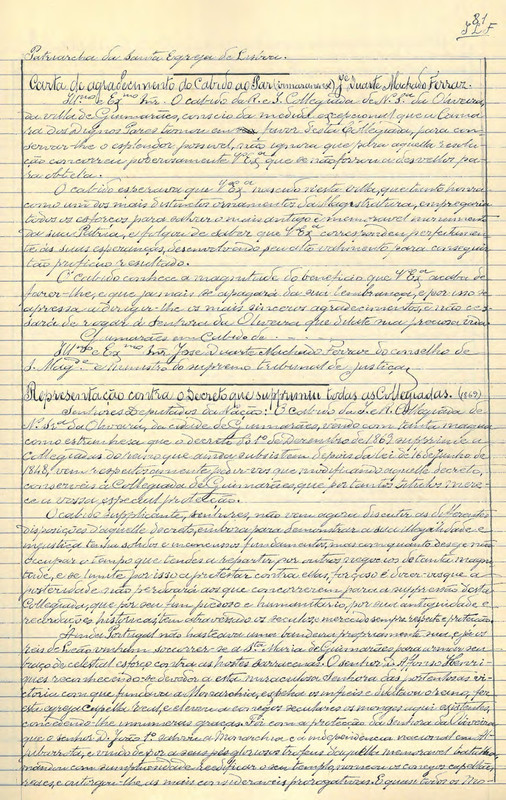 81
J L F
Patriarcha da Santa Egreja de Lisboa.
Carta de agradecimento do Cabido ao Par (vimaranense) José Duarte Machado Ferraz.
Illmo e Exmo Snr. O cabido da R. e I. Collegiada de N. Sra da Oliveira,
da villa de Guimarães, conscio da medida excepcional que a Cama-
ra dos Dignos Pares tomou em favor d'esta Collegiada, para con-
servar-lhe o esplendor possivel, não ignora que para aquella resolu-
ção concorreu poderosamente V. Exa que se não forrou a desvellos pa-
ra obtel-a.
O cabido esperava que V. Exa nascido n'esta villa, que tanto honra
como um dos mais distinctos ornamentos da Magistratura, empregaria
todos os esforços para salvar o mais antigo e memoravel monumento
da sua Patria, e folgou de saber que V. Exa correspondeu perfeitamen-
te ás suas esperanças, desenvolvendo seu alto valimento para conseguir
tão proficuo resultado.
O cabido conhece a magnitude do beneficio que V. Exa acaba de
fazer-lhe, e que jamais se apagará da sua lembrança, e por isso se
apressa a dirigir-lhe os mais sinceros agradecimentos, e não ces-
sará de rogar á Senhora da Oliveira que dilate sua preciosa vida.
Guimarães em Cabido de
Illmo e Exmo Snr. José Duarte Machado Ferraz do conselho de
S. Mage e ministro do supremo tribunal de justiça.
Representação contra o Decreto que supprimiu todas as Collegiadas. (1869)
Senhores Deputados da Nação! O cabido da I. e R. Collegiada de
N. Sra da Oliveira, da cidade de Guimarães, vendo com tanta magua
como estranhesa que o decreto do 1º de Dezembro de 1869 supprime as
Collegiadas do reino que ainda subsistem depois da lei de 16 de Junho de
1848, vem respeitosamente pedir-vos que modificando aquelle decreto,
conserveis a Collegiada de Guimarães, que por tantos titulos mere-
ce a vossa especial protecção.
O cabido supplicante, senhores, não vem agora discutir as differentes
disposições d'aquelle decreto, embora para demonstrar a sua illegalidade e
injustiça tenha solidos e inconcussos fundamentos, mas com quanto deseje não
occupar o tempo que tendes a repartir por outros negocios de tanta magni-
tude, e se limite por isso a protestar contra ellas, forçoso é dizer-vos que a
posteridade não perdoará aos que concorrerem para a suppressão d'esta
Collegiada, que por seu fim piedoso e humanitario, por sua antiguidade e
recordações historicas tem atravessado os seculos, merecido sempre respeito e protecção.
Ainda Portugal não hasteava uma bandeira propriamente sua, e já os
reis de Leão vinham soccorrer-se a Sta Maria de Guimarães para armar seu
braço de celestial esforço contra as hostes sarracenas. O senhor D. Affonso Henri-
ques reconhecendo-se devedor a esta miraculosa Senhora das portentosas vic-
torias com que fundava a Monarchia, expelia os infieis e dilatava o reino, fez
esta egreja Capella Real, e elevou a conegos seculares os monges aqui existentes,
concedendo-lhe innumeras graças. Foi com a protecção da Senhora da Oliveira
que o senhor D. João 1º salvou a Monarchia e a independencia nacional em Al-
jubarrota, e vindo depôr a seus pés gloriosos trofeus d'aquelle memoravel batalha
mandou com sumptuosidade reedificar o seu templo, nomeou os conegos capellães
reaes, e outorgou-lhe as mais consideraveis prerogativas. E quasi todos os Mo-